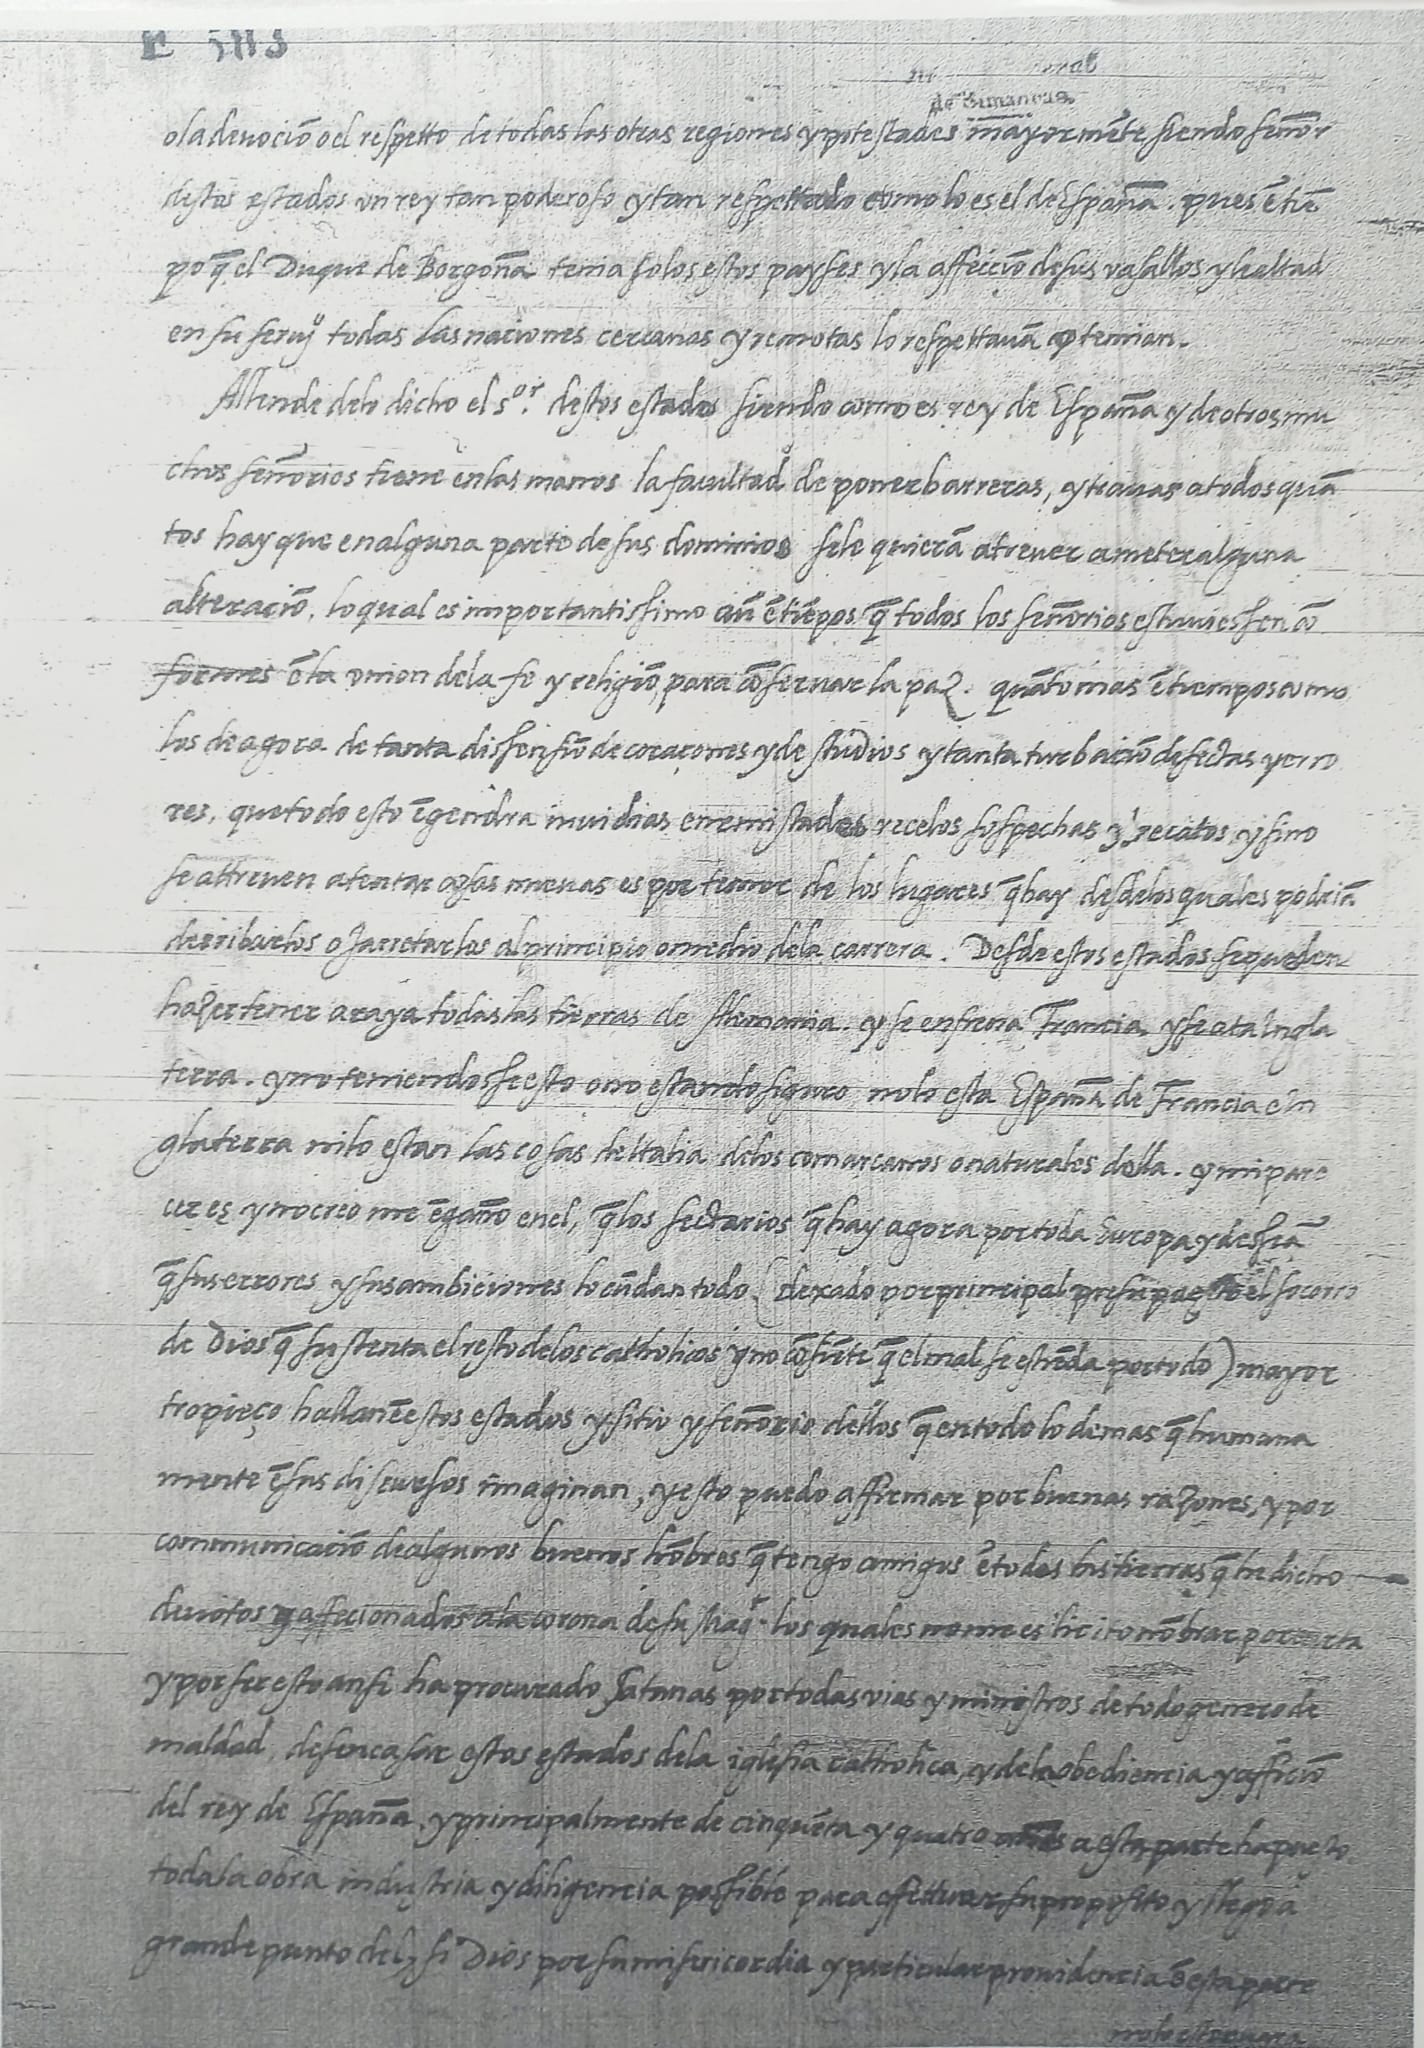 E 583
de Simancas
o la devoció o el respetto de todas las otras regiones y potestades mayormēte siendo señor
destos estados un rey tan poderoso y tan respettado como lo es el de España. pues ētiē
po q̄ el Duque de Borgoña tenia solos estos payses y la affeició de sus vasallos y lealtad
en su seruiº todas las naciones cercanas y remotas lo respettauā y temian.
Allende delo dicho el s.ᵒʳ destos estados siendo como es rey de España y de otros mu
chos señorios tiene en las manos la facultad de poner barreras, y trauas a todos quā
tos hay que en alguna parte de sus dominios se le quierā atreuer a meter alguna
alteració, lo qual es importantissimo aū ē tiēpos q̄ todos los señorios estuuiessen cō
formes ē la vnion dela fe y religiō, para cōseruar la paz. quāto mas ē tiempos como
los de agora de tanta dissensiō de coraçones y de studios y tanta turbació de sectas y erro
res, que todo esto ēgendra inuidias enemistades recelos sospechas y recatos, y si no
se attreuen a tentar cosas nueuas es por temor de los lugares q̄ hay desde los quales podriā
derribarlos o jarretarlos al principio o medio dela carrera. Desde estos estados se pueden
hazer tener a raya todas las tierras de Alemania. y se enfrena Francia, y se ata Ingla
terra. y no teniendosse esto o no estando siguro no lo esta España de Francia e In
glaterra ni lo estan las cosas de Italia delos comarcanos o naturales della. y mi pare
cer es y no creo me ēgaño en el, q̄ los sectarios q̄ hay agora por toda Europa y dessēā
q̄ sus errores y sus ambiciones lo cūdan todo (dexado por principal presupuesto el socorro
de Dios q̄ sustenta el resto delos catholicos y no cōsiēte q̄ el mal se estiēda por todo) mayor
tropieço hallan ē estos estados y sitio y señorio dellos q̄ en todo lo demas q̄ humana
mente ē sus discursos imaginan, y esto puedo affirmar por buenas razones, y por
comunicació de algunos buenos hōbres q̄ tengo amigos ē todas las tierras q̄ he dicho
deuotos y afecionados a la corona de su Magᵈ los quales no me es licito nōbrar por carta
y por ser esto ansi ha procurado Satanas por todas vias y ministros de todo genero de
maldad, desencasar estos estados dela iglesia catholica, y dela obediencia y afició
del rey de España, y principalmente de cinquēta y quatro años a esta parte ha puesto
toda la obra industria y diligencia possible para effettuar su proposito y llegó a
grande punto del, si Dios por su misericordia y particular prouidencia ē esta parte
no lo estoruara